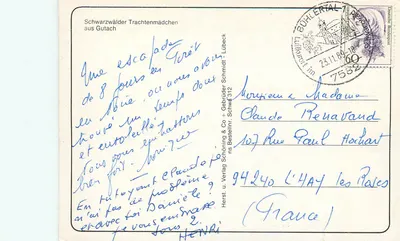 Schwarzwälder Trachtenmädchen
aus Gutach
Une escapade
de 8 jours en forêt
en Noire, où nous avons
trouvé un temps doux
et ensoleillé
Nous vous embrassons
bien fort.
En tutoyant Claude j'ai
n'ai pas de problème
et avec toi Danièle ?
Je vous embrasse
tous 2.
HENRI
Herst. u. Verlag Schöning & Co + Gebrüder Schmidt, Lübeck
Bestellnr. Schwa 312
BÜHLERTAL 1
23.11
7582
60
Monsieur Madame
Claude Renavand
107 Rue Paul Hochart
94240 L'HAY les Roses
(France)